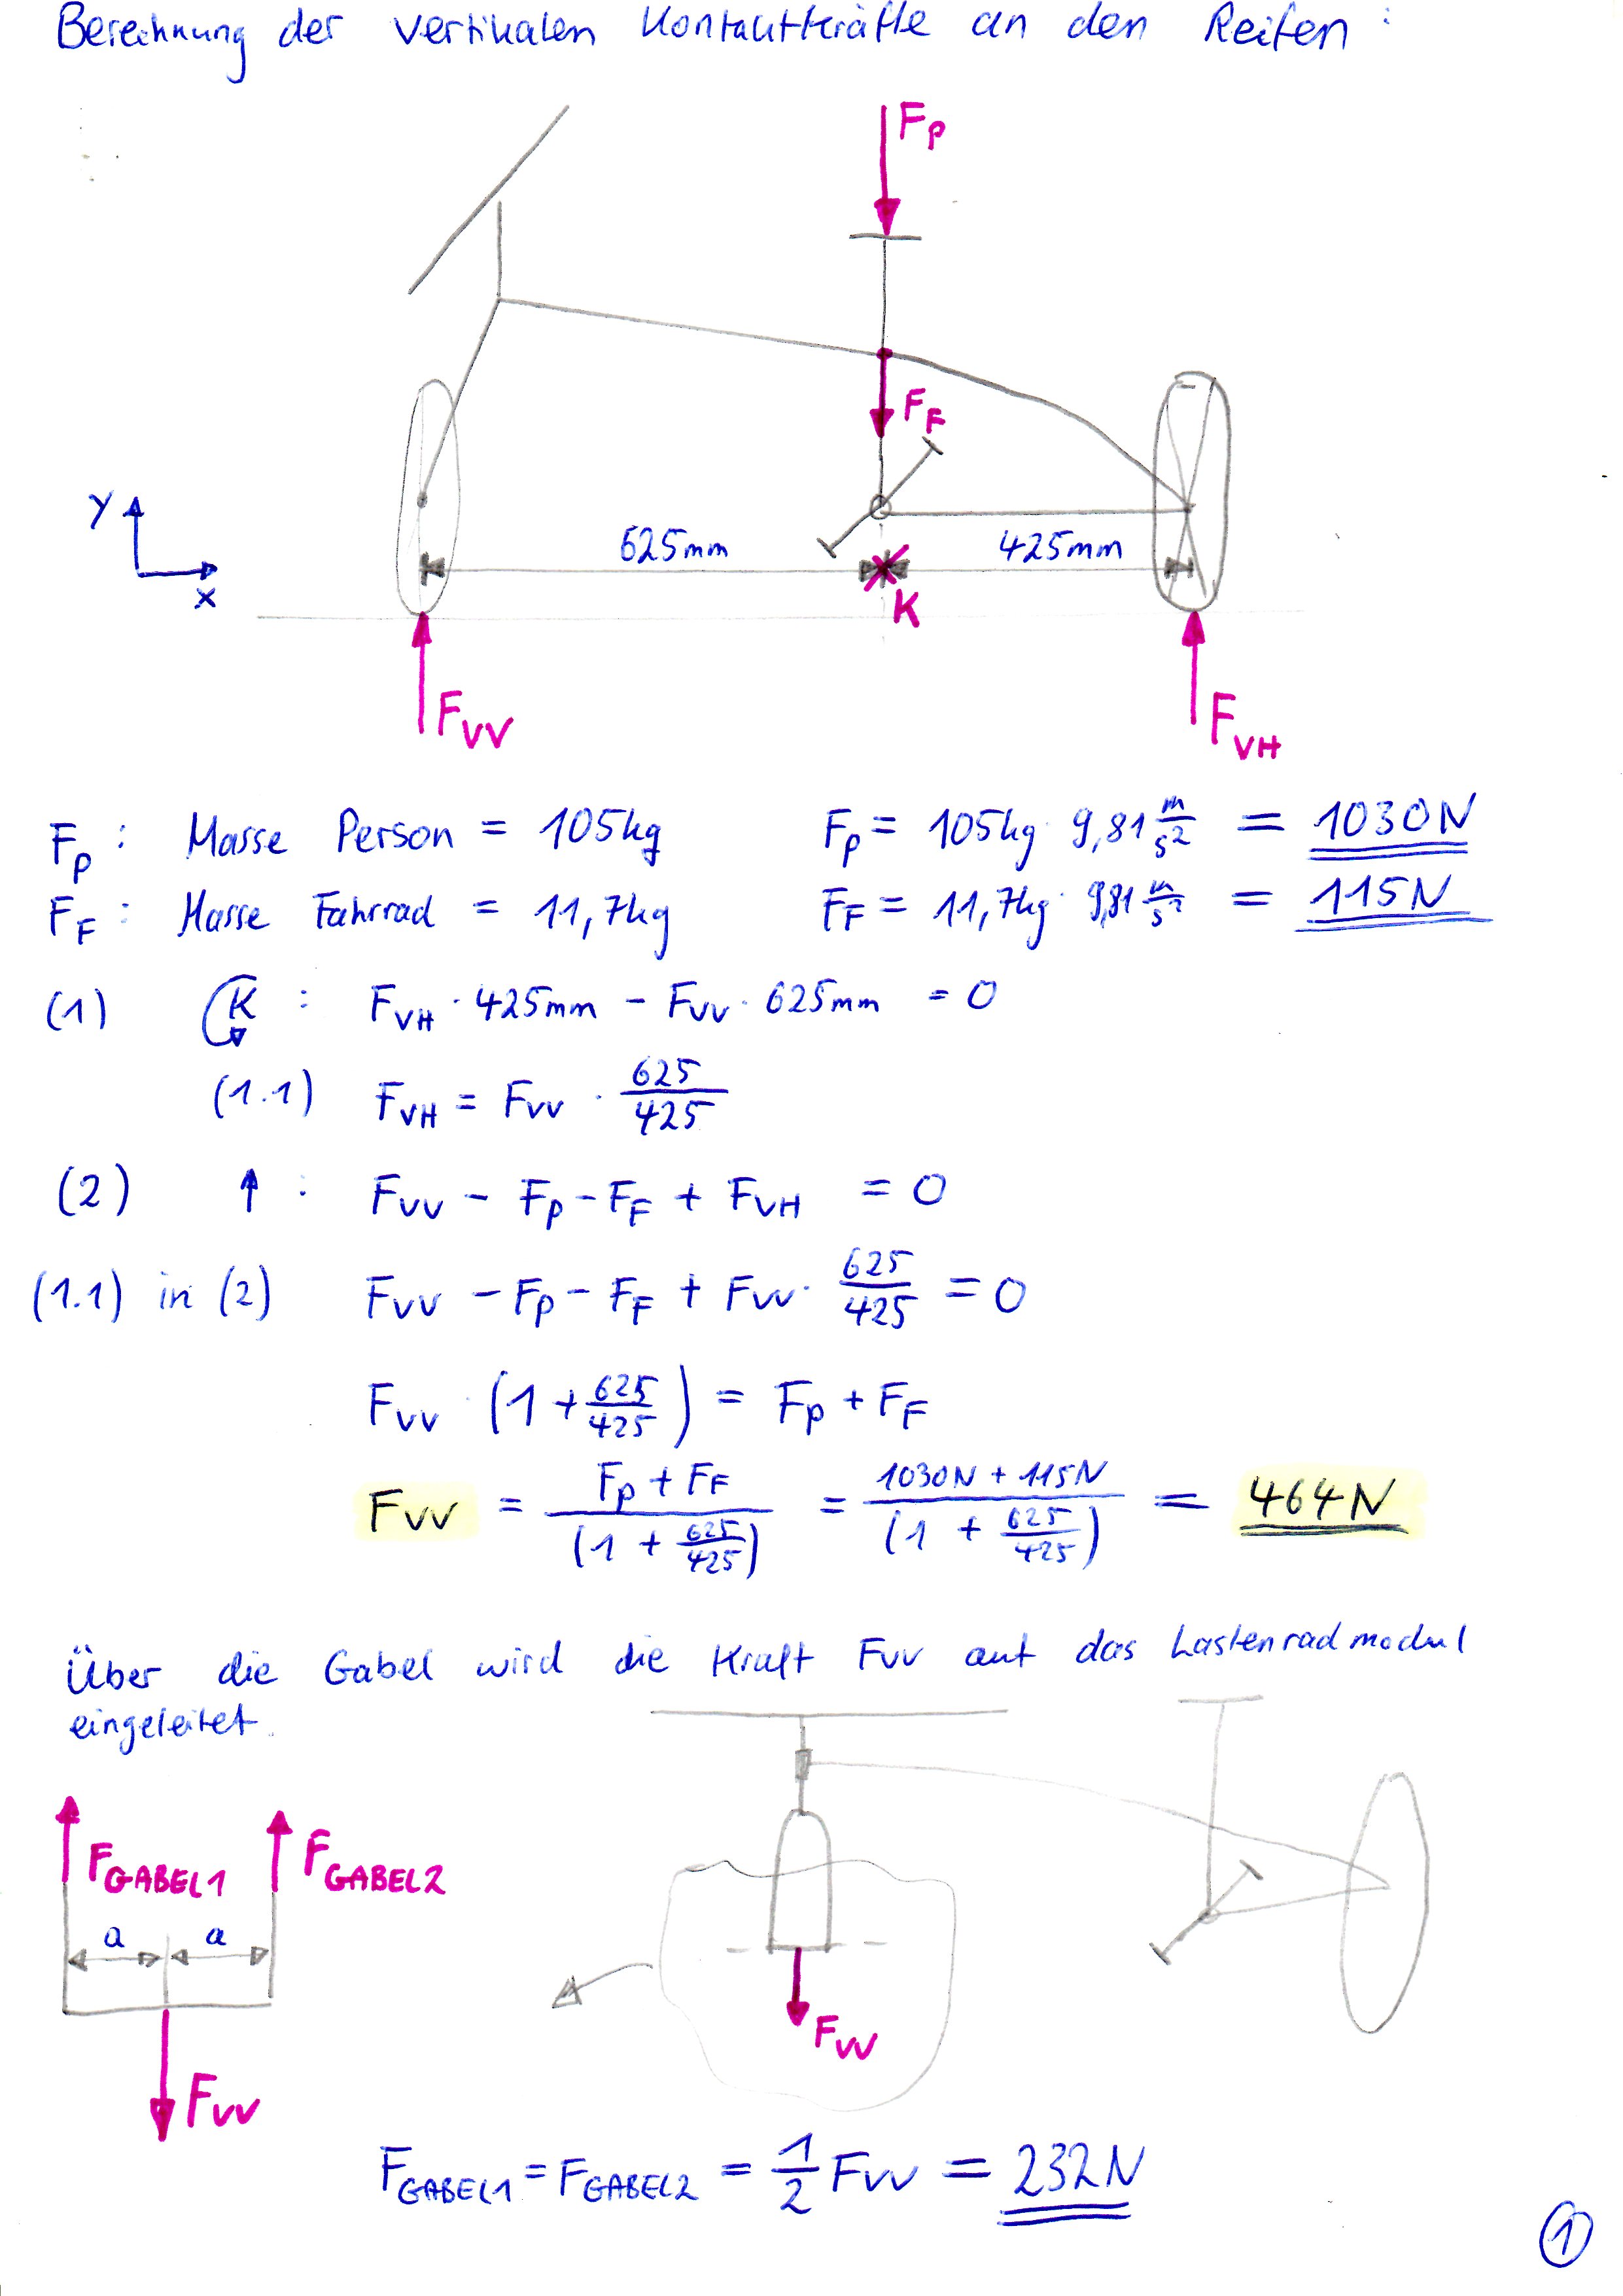 Berechnung der vertikalen Kontaktkräfte an den Reifen:
F_P
F_F
y
x
625mm
425mm
K
F_VV
F_VH
F_P : Masse Person = 105kg F_P = 105kg · 9,81 m/s² = 1030N
F_F : Masse Fahrrad = 11,7kg F_F = 11,7kg · 9,81 m/s² = 115N
(1) K : F_VH · 425mm - F_VV · 625mm = 0
(1.1) F_VH = F_VV · 625/425
(2) ↑ : F_VV - F_P - F_F + F_VH = 0
(1.1) in (2) F_VV - F_P - F_F + F_VV · 625/425 = 0
F_VV · (1 + 625/425) = F_P + F_F
F_VV = (F_P + F_F)/(1 + 625/425) = (1030N + 115N)/(1 + 625/425) = 464N
Über die Gabel wird die Kraft F_VV auf das Lastenradmodul
eingeleitet.
F_GABEL1
F_GABEL2
a a
F_VV
F_VV
F_GABEL1 = F_GABEL2 = 1/2 F_VV = 232N
1